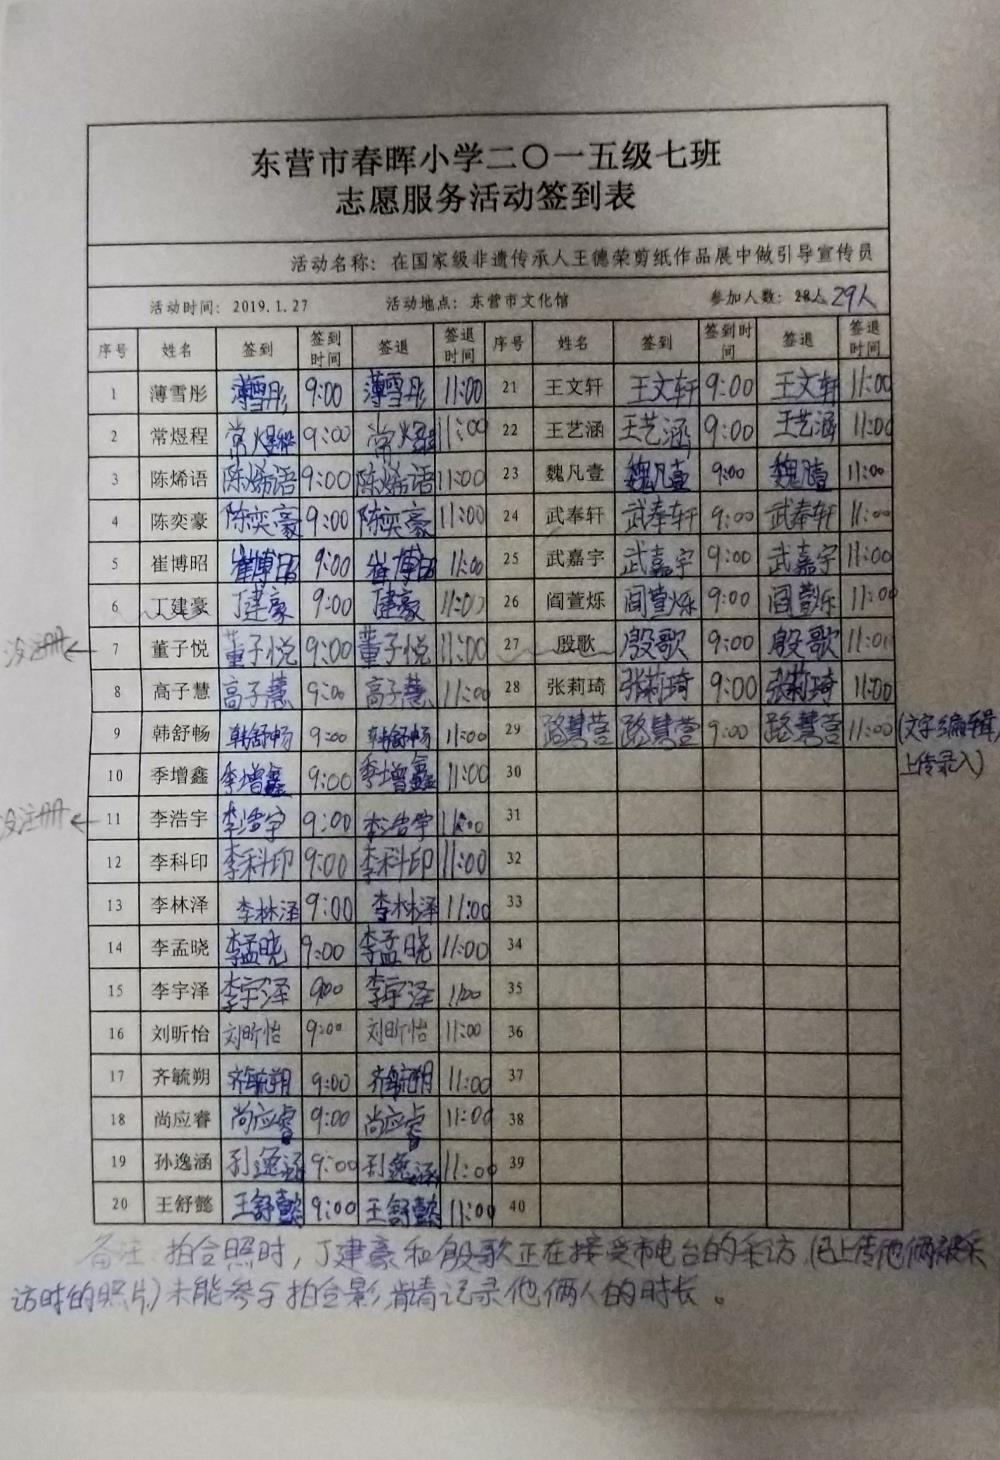 东营市春晖小学二〇一五级七班
志愿服务活动签到表
活动名称：在国家级非遗传承人王德荣剪纸作品展中做引导宣传员
活动时间：2019.1.27 活动地点：东营市文化馆 参加人数：28人 29人
序号 姓名 签到 签到时间 签退 签退时间 序号 姓名 签到 签到时间 签退 签退时间
1 薄雪彤 薄雪彤 9:00 薄雪彤 11:00 21 王文轩 王文轩 9:00 王文轩 11:00
2 常煜程 常煜程 9:00 常煜程 11:00 22 王艺涵 王艺涵 9:00 王艺涵 11:00
3 陈烯语 陈烯语 9:00 陈烯语 11:00 23 魏凡壹 魏凡壹 9:00 魏凡壹 11:00
4 陈奕豪 陈奕豪 9:00 陈奕豪 11:00 24 武奉轩 武奉轩 9:00 武奉轩 11:00
5 崔博昭 崔博昭 9:00 崔博昭 11:00 25 武嘉宇 武嘉宇 9:00 武嘉宇 11:00
6 丁建豪 丁建豪 9:00 丁建豪 11:00 26 阎萱烁 阎萱烁 9:00 阎萱烁 11:00
没注册 7 董子悦 董子悦 9:00 董子悦 11:00 27 殷歌 殷歌 9:00 殷歌 11:00
8 高子慧 高子慧 9:00 高子慧 11:00 28 张莉琦 张莉琦 9:00 张莉琦 11:00
9 韩舒畅 韩舒畅 9:00 韩舒畅 11:00 29 路慧萱 路慧萱 9:00 路慧萱 11:00 (文字编辑,
上传录入)
10 季增鑫 季增鑫 9:00 季增鑫 11:00 30
没注册 11 李浩宇 李浩宇 9:00 李浩宇 11:00 31
12 李科印 李科印 9:00 李科印 11:00 32
13 李林泽 李林泽 9:00 李林泽 11:00 33
14 李孟晓 李孟晓 9:00 李孟晓 11:00 34
15 李宇泽 李宇泽 9:00 李宇泽 11:00 35
16 刘昕怡 刘昕怡 9:00 刘昕怡 11:00 36
17 齐毓朔 齐毓朔 9:00 齐毓朔 11:00 37
18 尚应睿 尚应睿 9:00 尚应睿 11:00 38
19 孙逸涵 孙逸涵 9:00 孙逸涵 11:00 39
20 王舒懿 王舒懿 9:00 王舒懿 11:00 40
备注：拍合照时，丁建豪和殷歌正在接受市电台的采访，(已上传他俩被采
访时的照片)未能参与拍合影，敬请记录他俩人的时长。